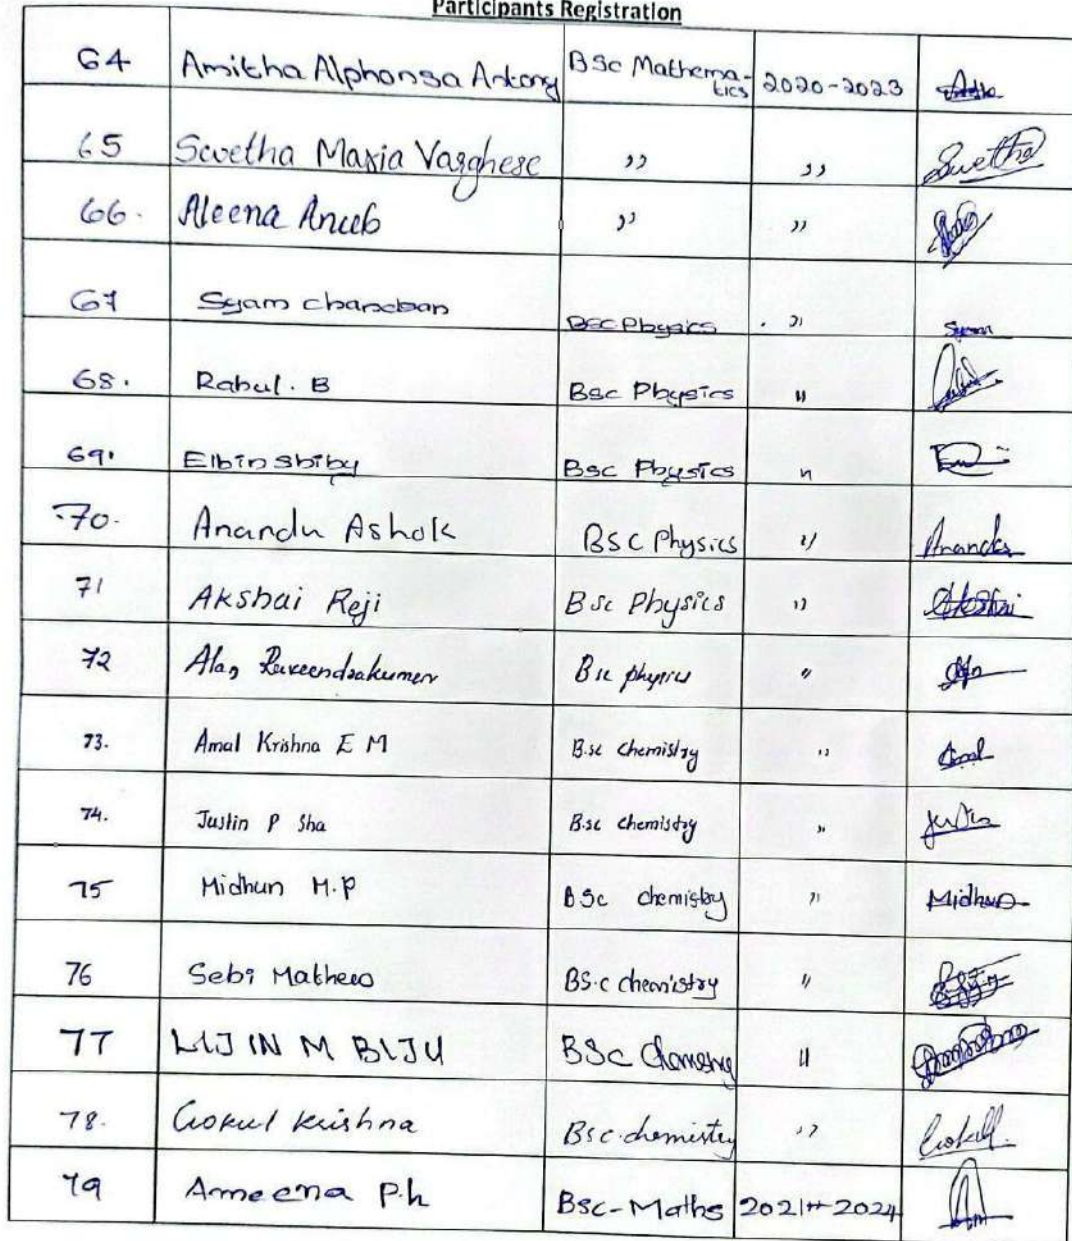 Participants Registration
64 Amitha Alphonsa Antony BSc Mathema-tics 2020-2023
65 Swetha Maria Varghese ,, ,, Swetha
66. Aleena Aneeb ,, ,,
67 Syam chandran BSC Physics . ,, Syam
68. Rahul. B Bsc Physics ,,
69. Elbin shiby Bsc Physics ,,
70. Anandu Ashok BSC Physics ,, Anandu
71 Akshai Reji Bsc Physics ,, Akshai
72 Alan Raveendrakumar Bsc physics ,,
73. Amal Krishna E M B.sc chemistry ,, Amal
74. Justin P Sha B.sc chemistry ,, Justin
75 Midhun M.P BSc chemistry ,, Midhun
76 Sebi Mathew BS.c chemistry ,,
77 LIJIN M BIJU BSc Chemistry ,,
78. Gokul krishna Bsc.chemistry ,, Gokul
79 Ameena P.h BSC-Maths 2021-2024